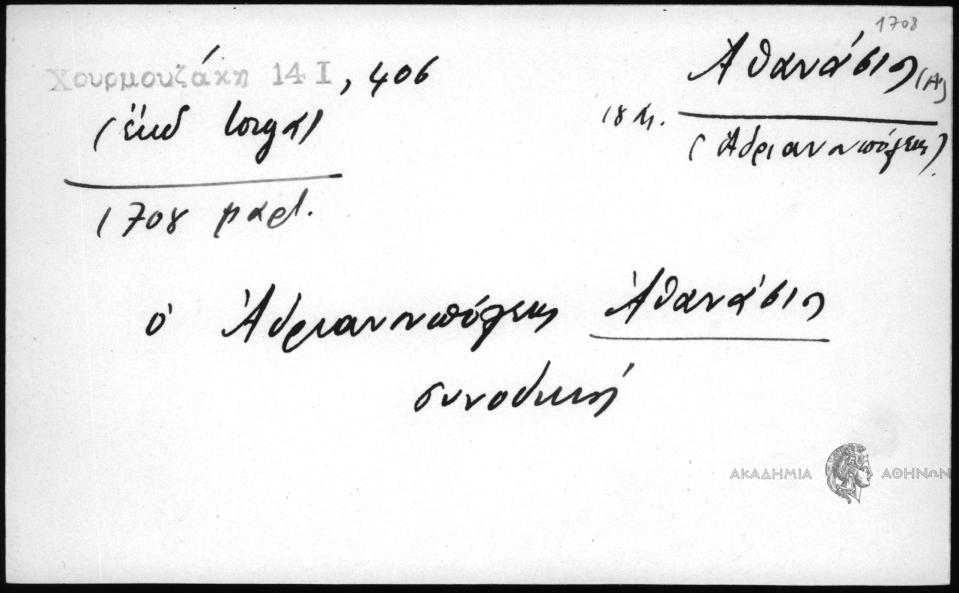 1708
Χουρμουζάκη 14 I, 406
(ἔκδ Iorga)
1708 μαρτ.
Ἀθανάσιος (Α')
18 αἰ.
(Ἀδριανουπόλεως)
ὁ Ἀδριανουπόλεως Ἀθανάσιος
συνοδική
ΑΚΑΔΗΜΙΑ ΑΘΗΝΩΝ